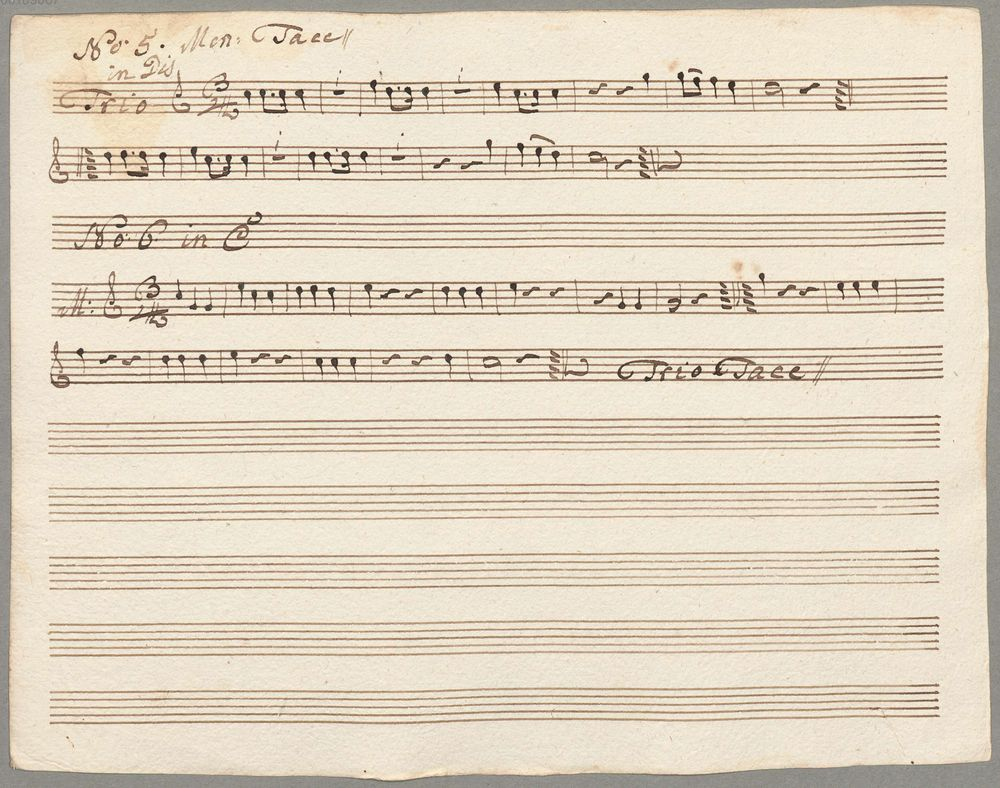 No: 5. Men: Tacet
in Dis
Trio 3/4
No: 6 in C
M: 3/4
Trio Tacet